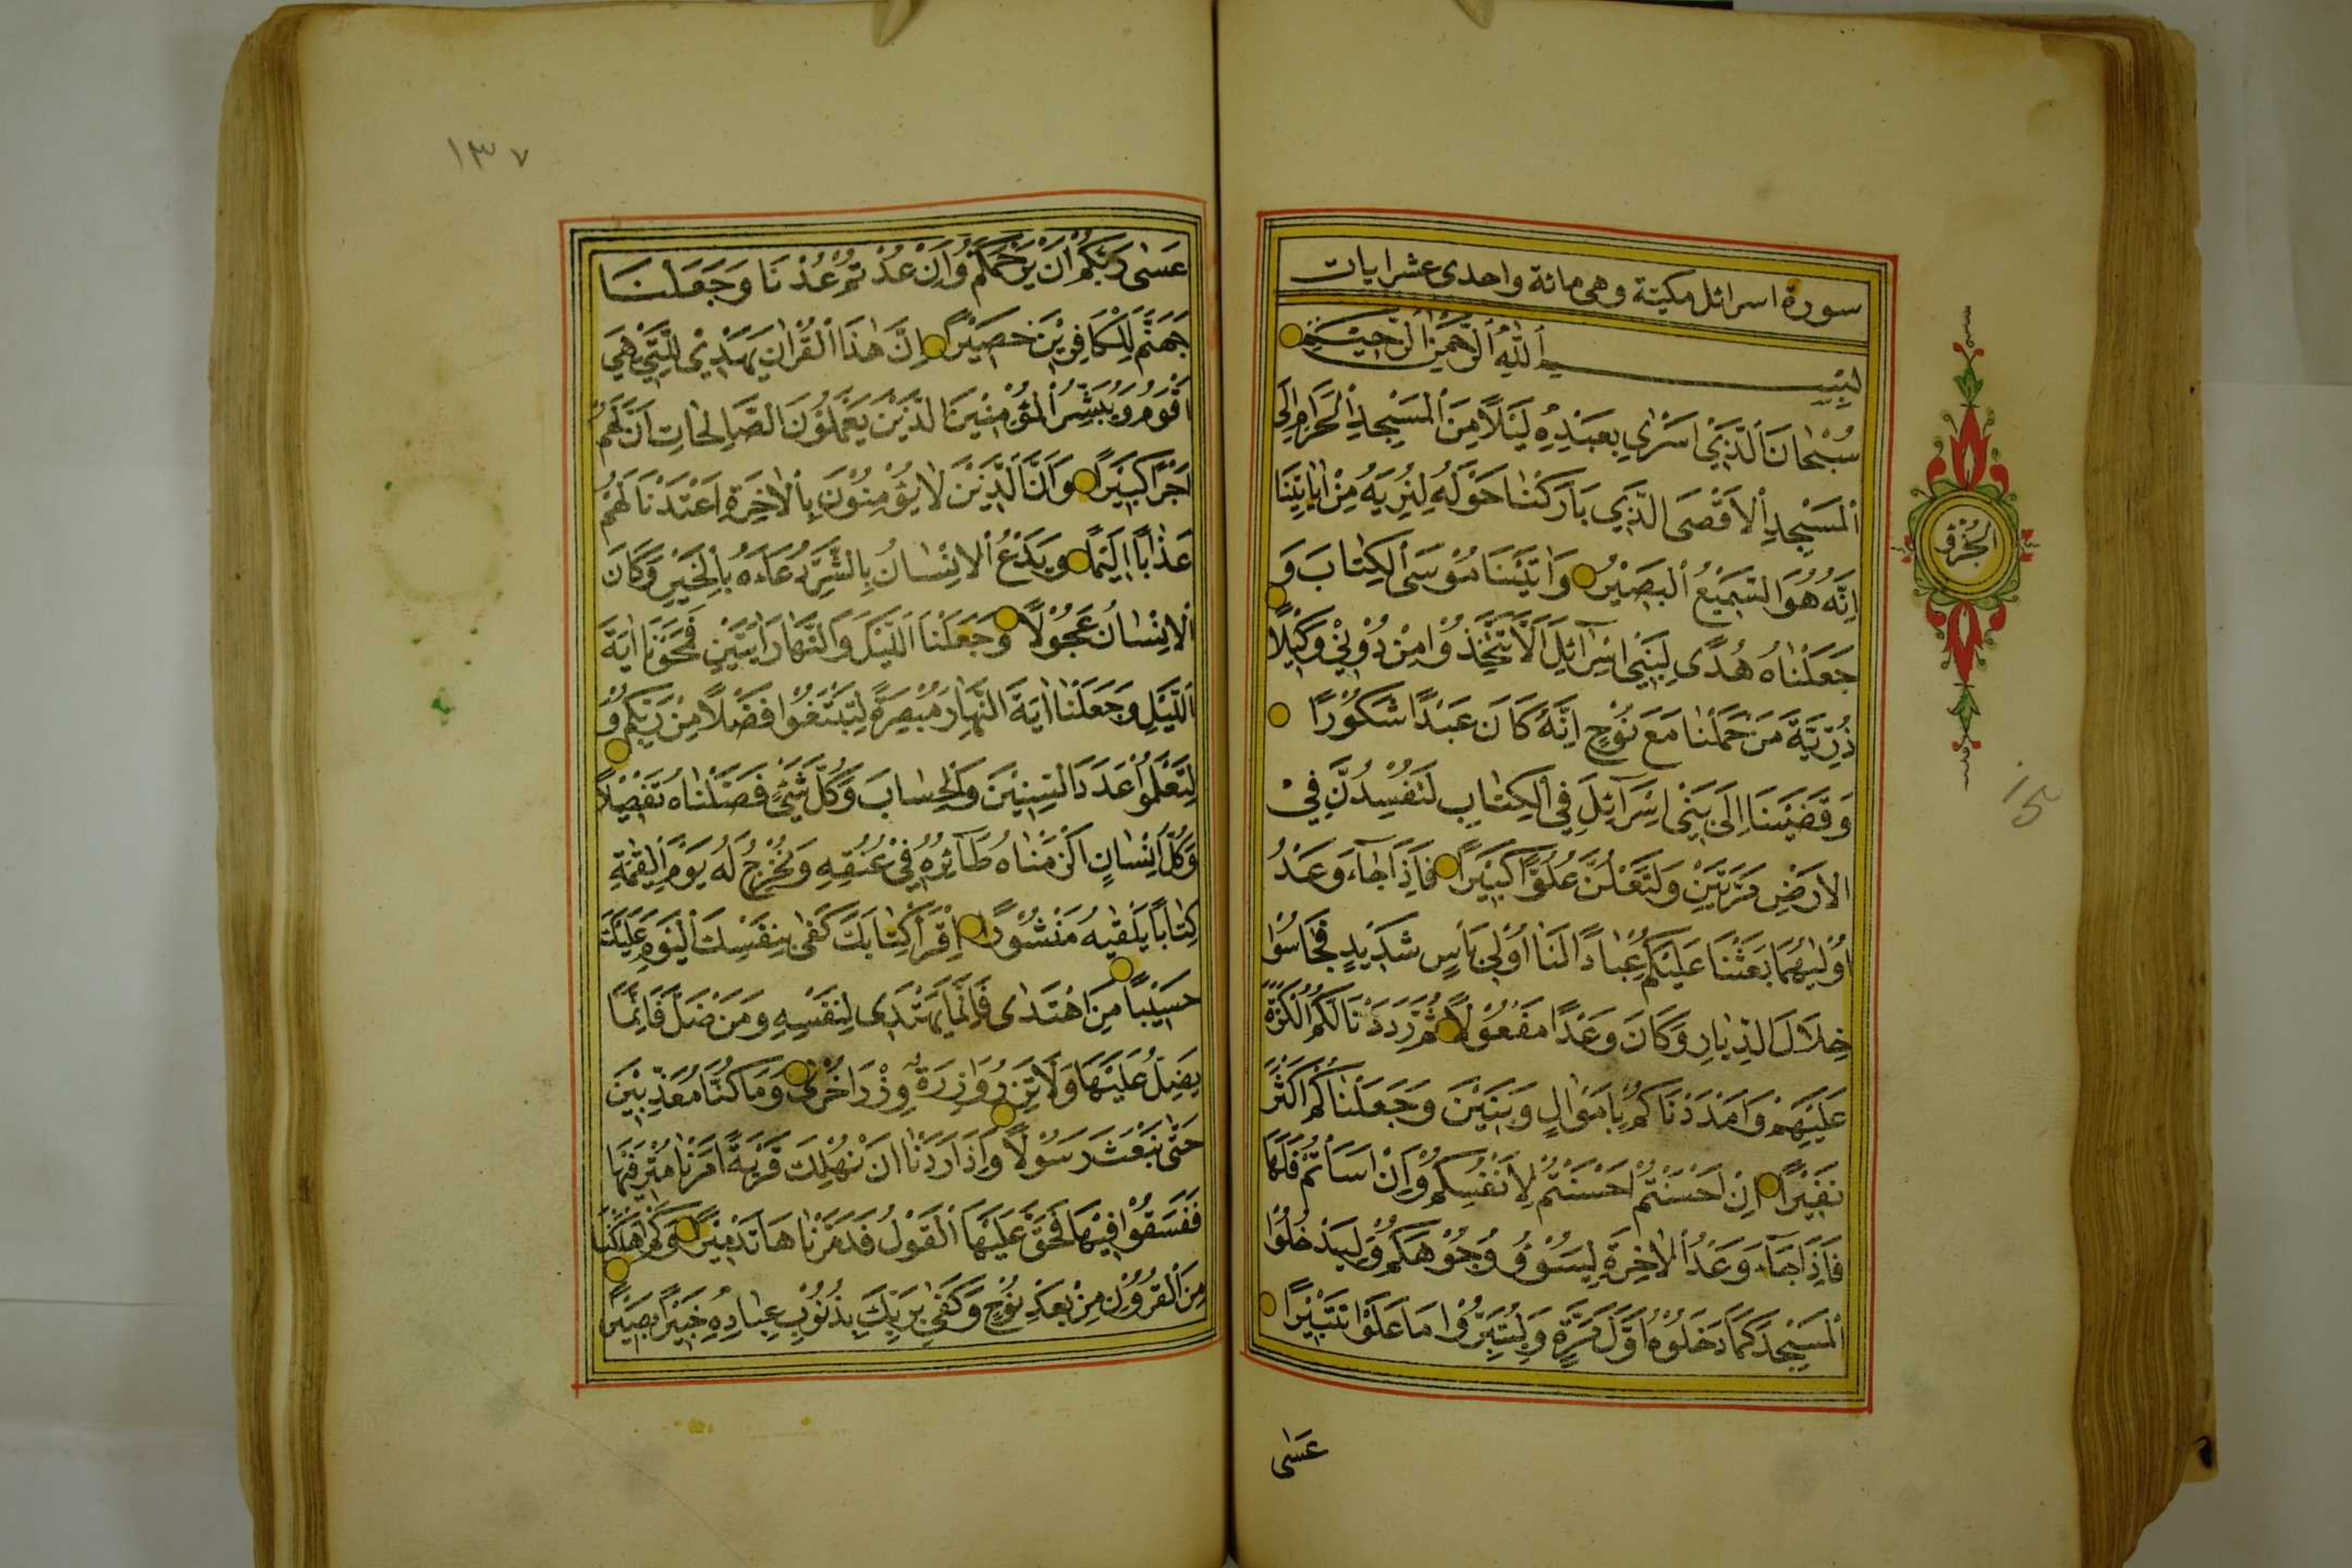 سورة اسرائل مكية وهى مائة واحدى عشر ايات
بِسْمِ اللّٰهِ الرَّحْمٰنِ الرَّحِيْمِ
سُبْحٰانَ الَّذِيْ اَسْرٰى بِعَبْدِهِ لَيْلًا مِنَ الْمَسْجِدِ الْحَرَامِ اِلَى
الْمَسْجِدِ الْاَقْصَى الَّذِيْ بَارَكْنٰا حَوْلَهُ لِنُرِيَهُ مِنْ اٰيَاتِنَا
اِنَّهُ هُوَ السَّمِيْعُ الْبَصِيْرُ وَاٰتَيْنَا مُوْسَى الْكِتٰابَ وَ
جَعَلْنٰاهُ هُدًى لِبَنِيْ اِسْرٰآئِلَ اَلَّا تَتَّخِذُوْا مِنْ دُوْنِيْ وَكِيْلًا
ذُرِّيَّةَ مَنْ حَمَلْنٰا مَعَ نُوْحٍ اِنَّهُ كَانَ عَبْدًا شَكُوْرًا
وَقَضَيْنَا اِلَى بَنِيْ اِسْرَآئِلَ فِي الْكِتٰابِ لَتُفْسِدُنَّ فِيْ
الْاَرْضِ مَرَّتَيْنِ وَلَتَعْلُنَّ عُلُوًّا كَبِيْرًا فَاِذَا جٰاءَ وَعْدُ
اُوْلٰيهُمَا بَعَثْنَا عَلَيْكُمْ عِبٰادًا لَنَا اُوْلِيْ بَاْسٍ شَدِيْدٍ فَجَاسُوْا
خِلَالَ الدِّيٰارِ وَكَانَ وَعْدًا مَفْعُوْلًا ثُمَّ رَدَدْنَا لَكُمُ الْكَرَّةَ
عَلَيْهِمْ وَاَمْدَدْنَاكُمْ بِاَمْوٰالٍ وَبَنِيْنَ وَجَعَلْنٰاكُمْ اَكْثَرَ
نَفِيْرًا اِنْ اَحْسَنْتُمْ اَحْسَنْتُمْ لِاَنْفُسِكُمْ وَاِنْ اَسَاْتُمْ فَلَهَا
فَاِذَا جَآءَ وَعْدُ الْاٰخِرَةِ لِيَسُوْؤُ وُجُوْهَكُمْ وَلِيَدْخُلُوْا
الْمَسْجِدَ كَمَا دَخَلُوْهُ اَوَّلَ مَرَّةٍ وَلِيُتَبِّرُوْا مَا عَلَوْا تَتْبِيْرًا
عَسٰى
الجزؤ
١٣٧
عَسٰى رَبُّكُمْ اَنْ يَرْحَمَكُمْ وَاِنْ عُدْتُمْ عُدْنَا وَجَعَلْنَا
جَهَنَّمَ لِلْكَافِرِيْنَ حَصِيْرًا اِنَّ هٰذَا الْقُرْاٰنَ يَهْدِيْ لِلَّتِيْ هِيَ
اَقْوَمُ وَيُبَشِّرُ الْمُؤْمِنِيْنَ الَّذِيْنَ يَعْمَلُوْنَ الصَّالِحٰاتِ اَنَّ لَهُمْ
اَجْرًا كَبِيْرًا وَاَنَّ الَّذِيْنَ لَا يُؤْمِنُوْنَ بِالْاٰخِرَةِ اَعْتَدْنَا لَهُمْ
عَذٰابًا اَلِيْمًا وَيَدْعُ الْاِنْسٰانُ بِالشَّرِّ دُعَاءَهُ بِالْخَيْرِ وَكَانَ
الْاِنْسٰانُ عَجُوْلًا وَجَعَلْنَا اللَّيْلَ وَالنَّهَارَ اٰيَتَيْنِ فَمَحَوْنَا اٰيَةَ
اللَّيْلِ وَجَعَلْنٰا اٰيَةَ النَّهٰارِ مُبْصِرَةً لِتَبْتَغُوْا فَضْلًا مِنْ رَبِّكُمْ وَ
لِتَعْلَمُوْا عَدَدَ السِّنِيْنَ وَالْحِسٰابَ وَكُلَّ شَيْءٍ فَصَّلْنٰاهُ تَفْصِيْلًا
وَكُلَّ اِنْسٰانٍ اَلْزَمْنٰاهُ طٰآئِرَهُ فِيْ عُنُقِهِ وَنُخْرِجُ لَهُ يَوْمَ الْقِيٰمَةِ
كِتٰابًا يَلْقٰيهُ مَنْشُوْرًا اِقْرَاْ كِتٰابَكَ كَفٰى بِنَفْسِكَ الْيَوْمَ عَلَيْكَ
حَسِيْبًا مَنِ اهْتَدٰى فَاِنَّمَا يَهْتَدِى لِنَفْسِهِ وَمَنْ ضَلَّ فَاِنَّمَا
يَضِلُّ عَلَيْهَا وَلَا تَزِرُ وَازِرَةٌ وِزْرَ اُخْرٰى وَمَا كُنَّا مُعَذِّبِيْنَ
حَتّٰى نَبْعَثَ رَسُوْلًا وَاِذَا اَرَدْنٰا اَنْ نُهْلِكَ قَرْيَةً اَمَرْنٰا مُتْرَفِيْهَا
فَفَسَقُوْا فِيْهَا فَحَقَّ عَلَيْهَا الْقَوْلُ فَدَمَّرْنٰاهَا تَدْمِيْرًا وَكَمْ اَهْلَكْنَا
مِنَ الْقُرُوْنِ مِنْ بَعْدِ نُوْحٍ وَكَفٰى بِرَبِّكَ بِذُنُوْبِ عِبٰادِهِ خَبِيْرًا بَصِيْرًا